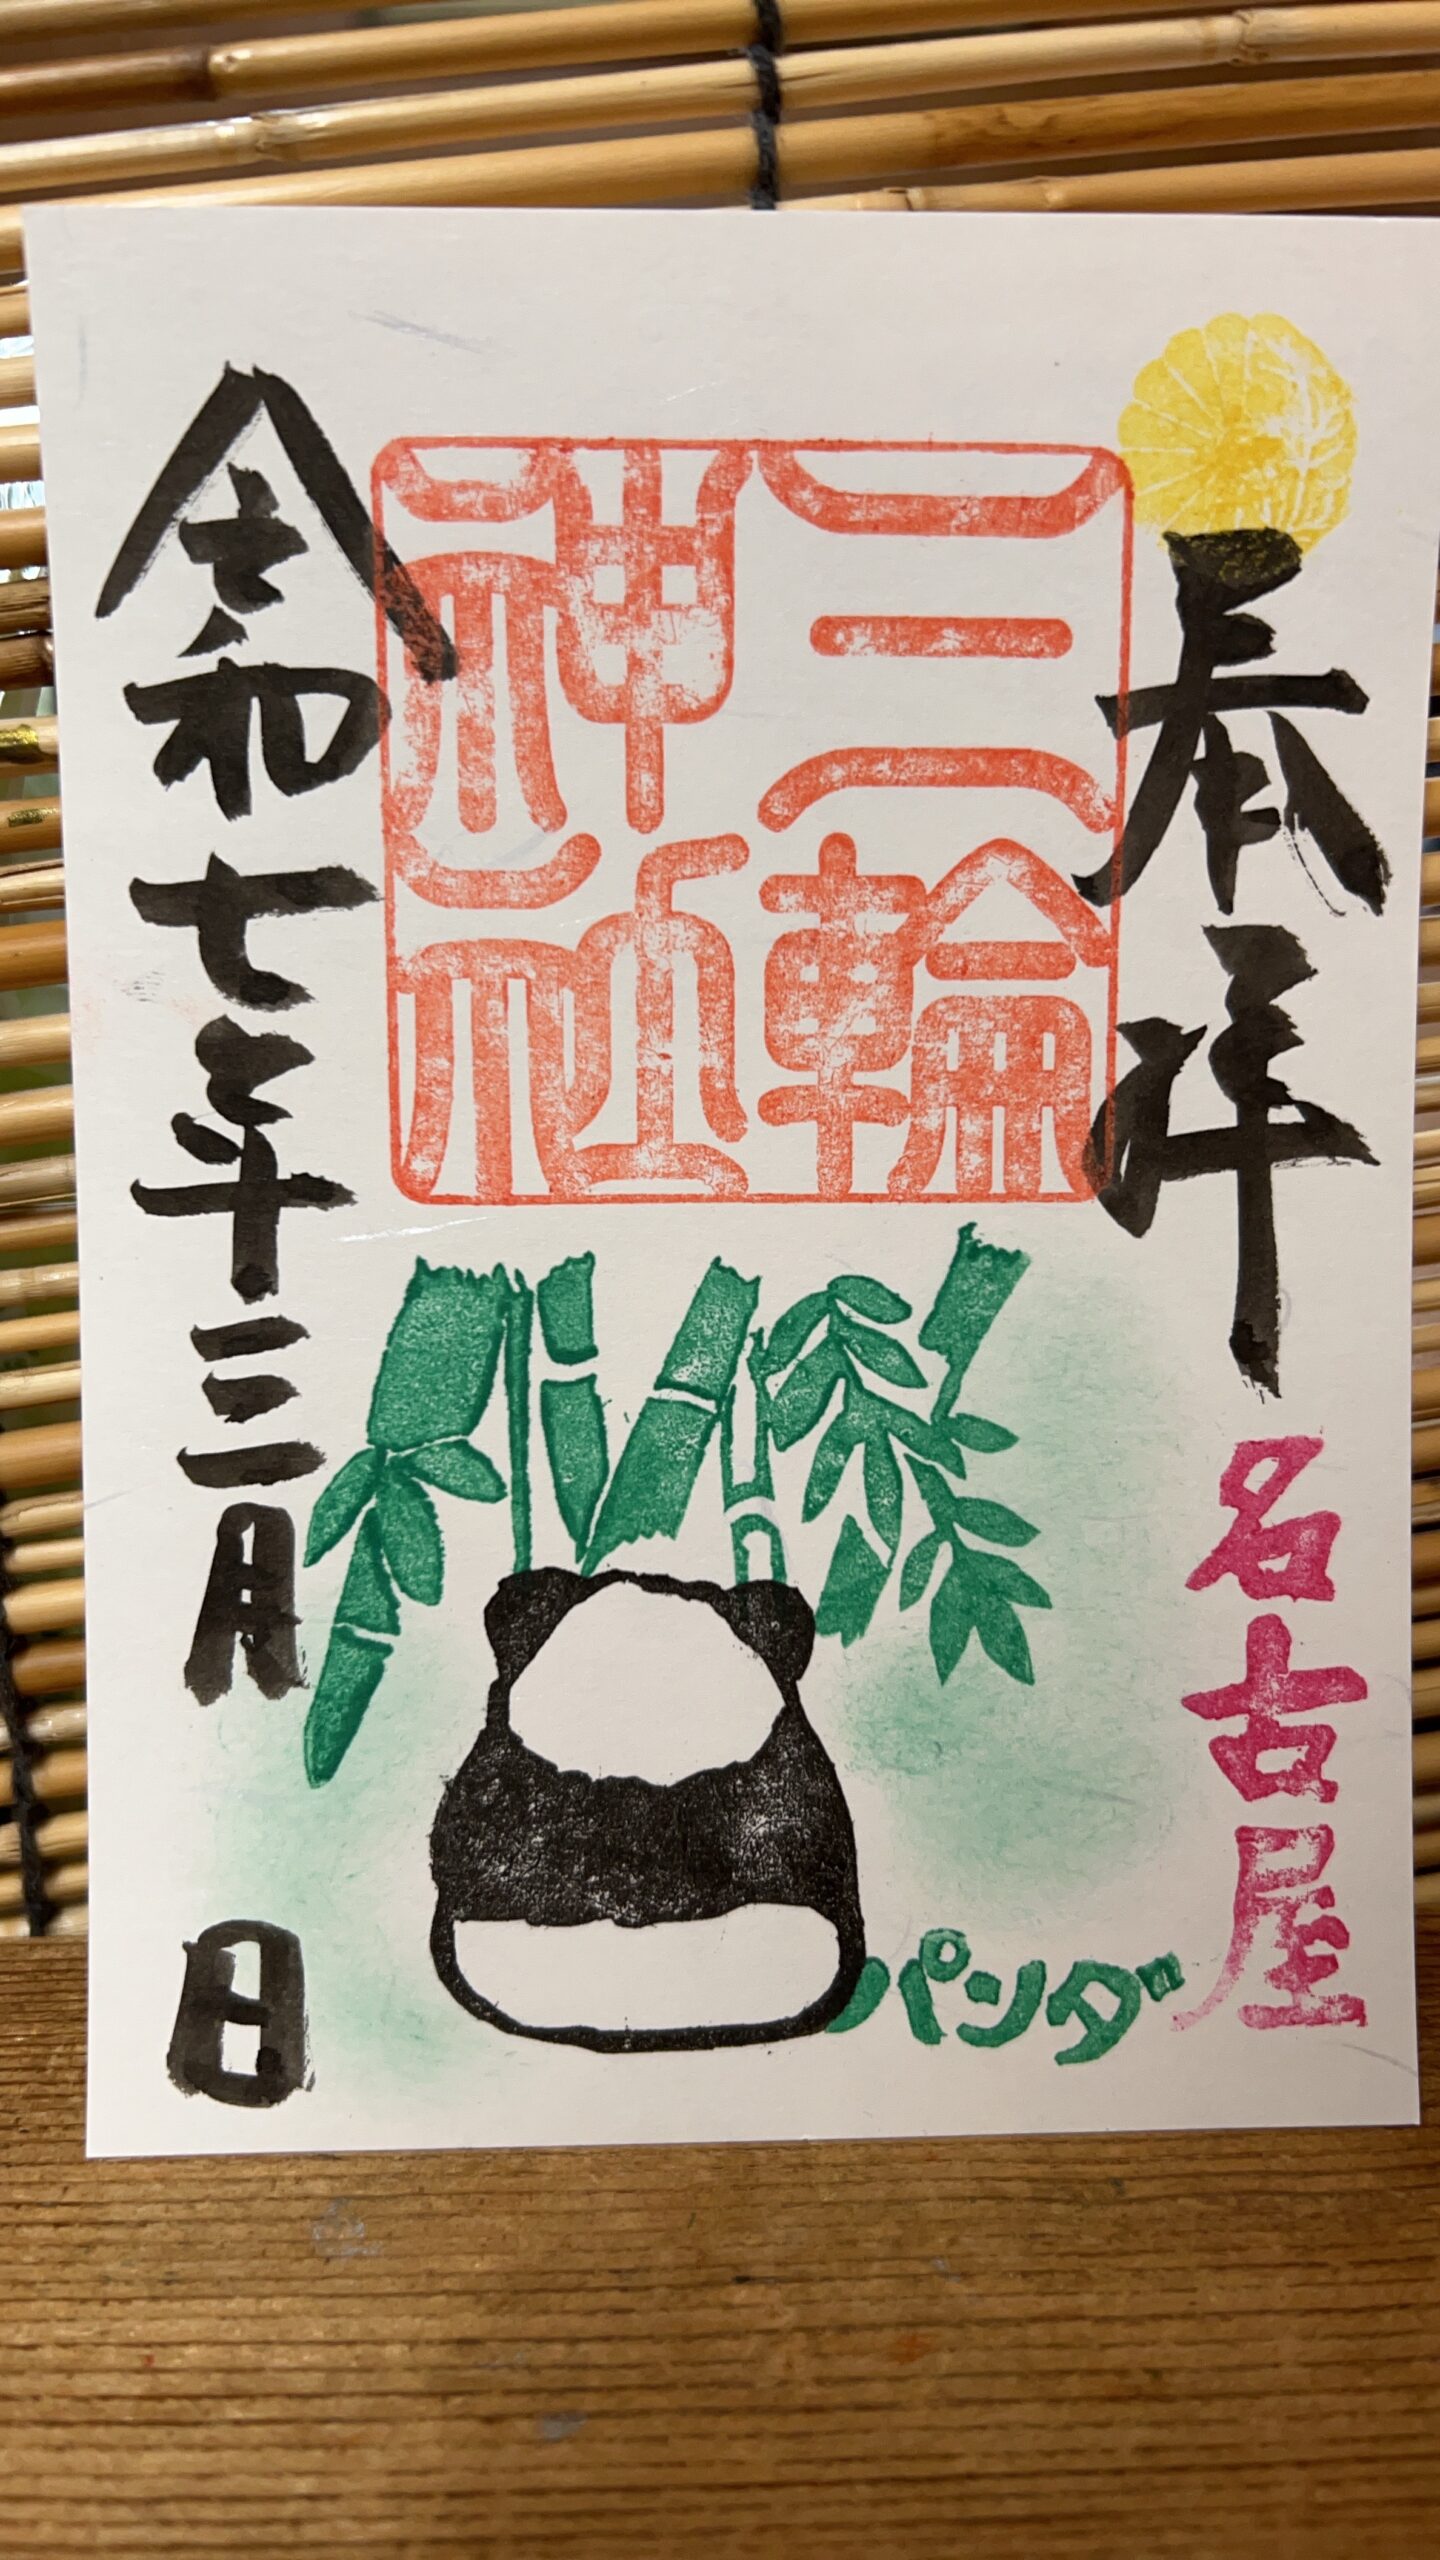 奉拝
名古屋
三輪
神社
パンダ
令和七年三月 日